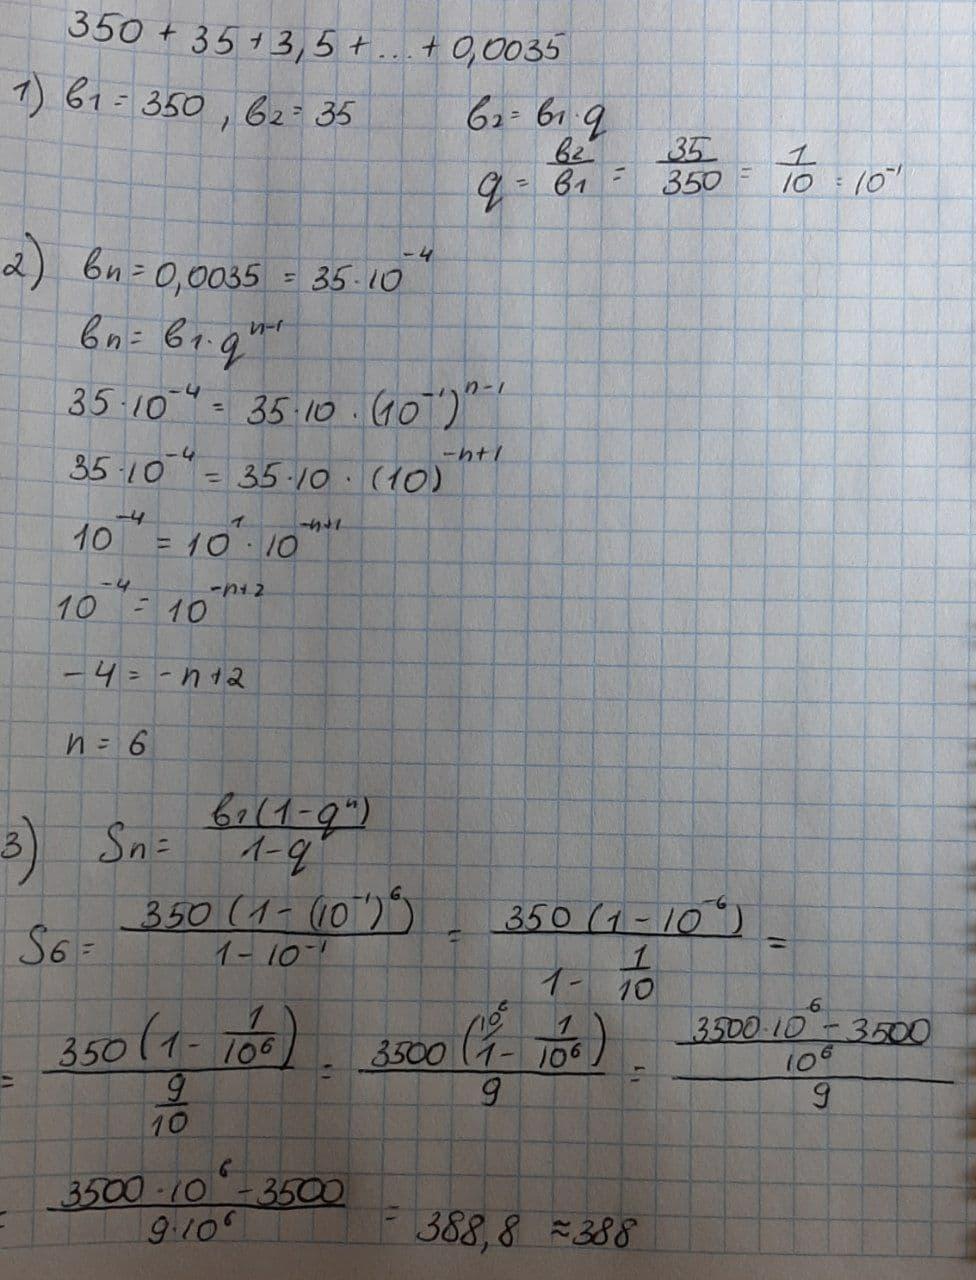 350 + 35 + 3,5 + ... + 0,0035
1) b₁ = 350 , b₂ = 35     b₂ = b₁·q
q = b₂/b₁ = 35/350 = 1/10 = 10⁻¹
2) bn = 0,0035 = 35·10⁻⁴
bn = b₁·qⁿ⁻¹
35·10⁻⁴ = 35·10·(10⁻¹)ⁿ⁻¹
35·10⁻⁴ = 35·10·(10)⁻ⁿ⁺¹
10⁻⁴ = 10¹·10⁻ⁿ⁺¹
10⁻⁴ = 10⁻ⁿ⁺²
-4 = -n+2
n = 6
3) Sn = b₁(1-qⁿ)/1-q
S₆ = 350(1-(10⁻¹)⁶)/1-10⁻¹ = 350(1-10⁻⁶)/1-1/10 =
= 350(1-1/10⁶)/9/10 = 3500(10⁶/1-1/10⁶)/9 = 3500·10⁶-3500/10⁶/9
= 3500·10⁶-3500/9·10⁶ = 388,8 ≈388